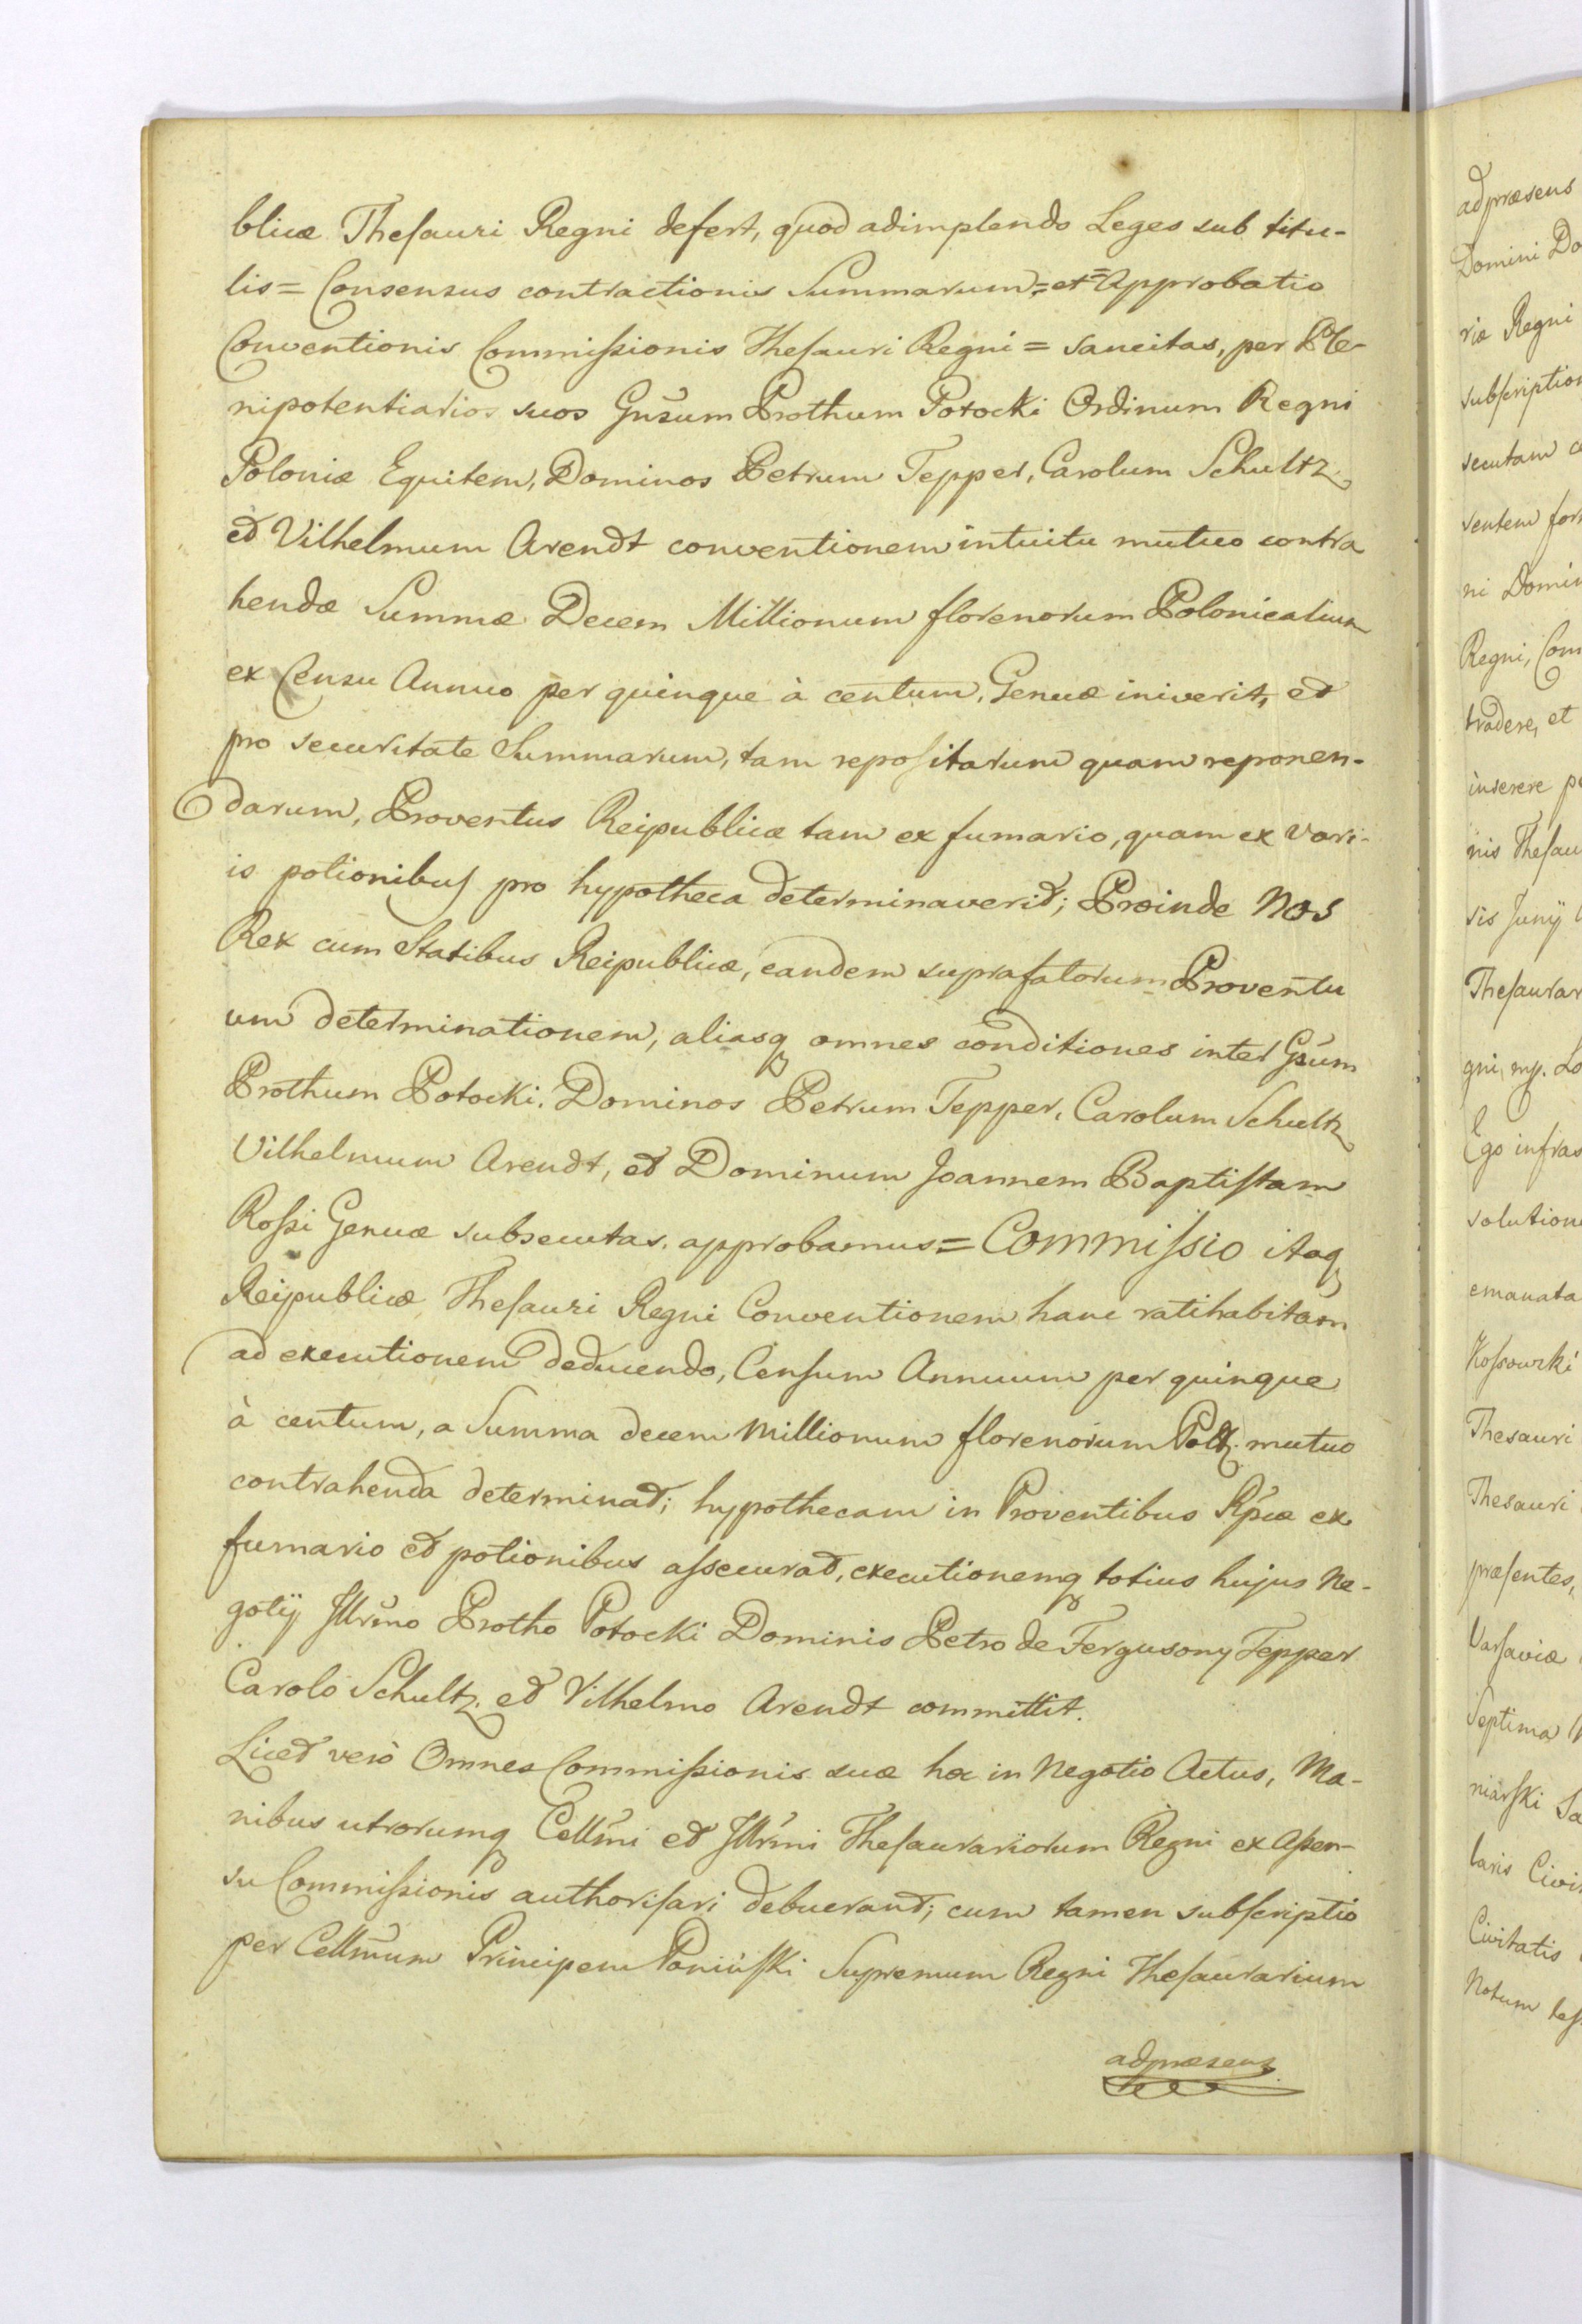 blicæ Thesauri Regni defert, quod adimplendo Leges sub titu-
lis = Consensus contractionis Summarum = et = Approbatio
Conventionis Commissionis Thesauri Regni = sancitas, per Ple-
nipotentiarios suos Gnsum Prothum Potocki Ordinum Regni
Poloniæ Equitem, Dominos Petrum Tepper, Carolum Schultz
et Vilhelmum Arendt conventionem intuitu mutuo contra
hendæ Summæ Decem Millionum florenorum Polonicalium
ex Censu Annuo per quinque à centum, Genuæ iniverit, et
pro securitate Summarum, tam repositarum quam reponen-
darum, Proventus Reipublicæ tam ex fumario, quam ex vari-
is potionibus pro hypotheca determinaverit; Proinde Nos
Rex cum Statibus Reipublicæ, eandem suprafatorum Proventu
um determinationem, aliasq omnes conditiones inter Gsum
Prothum Potocki, Dominos Petrum Tepper, Carolum Schultz
Vilhelmum Arendt, et Dominum Joannem Baptistam
Rossi Genuæ subsecutas, approbamus = Commissio itaq
Reipublicæ Thesauri Regni Conventionem hanc ratihabitam
ad executionem deducendo, Censum Annuum per quinque
à centum, a Summa decem Millionum florenorum Polz. mutuo
contrahenda determinat; hypothecam in Proventibus Rpcæ ex
fumario et potionibus assecurat, executionemq totius hujus Ne-
gotij Jllrmo Protho Potocki Dominis Petro de Fergusony Tepper
Carolo Schultz. et Vilhelmo Arendt committit.
Licet verò Omnes Commissionis suæ hoc in Negotio Actus, Ma-
nibus utrorumq Cellmi et Jllrmi Thesaurariorum Regni ex Assen-
su Commissionis authorisari debuerant; cum tamen subscriptio
per Cellmum Principem Poniński Supremum Regni Thesaurarium
adpræsens
adpræsens
Domini Do
riæ Regni
subscription
secutam c
ventem for
ni Domin
Regni, Com
tradere, et
inserere pe
nis Thesau
sis Junÿ
Thesaurar
gni, mp. Lo
Ego infras
solution
emanata
Kossowski
Thesauri
Thesauri
præsentes,
Varsaviæ
Septima
niarski Sa
laris Civi
Civitatis
Notum tes